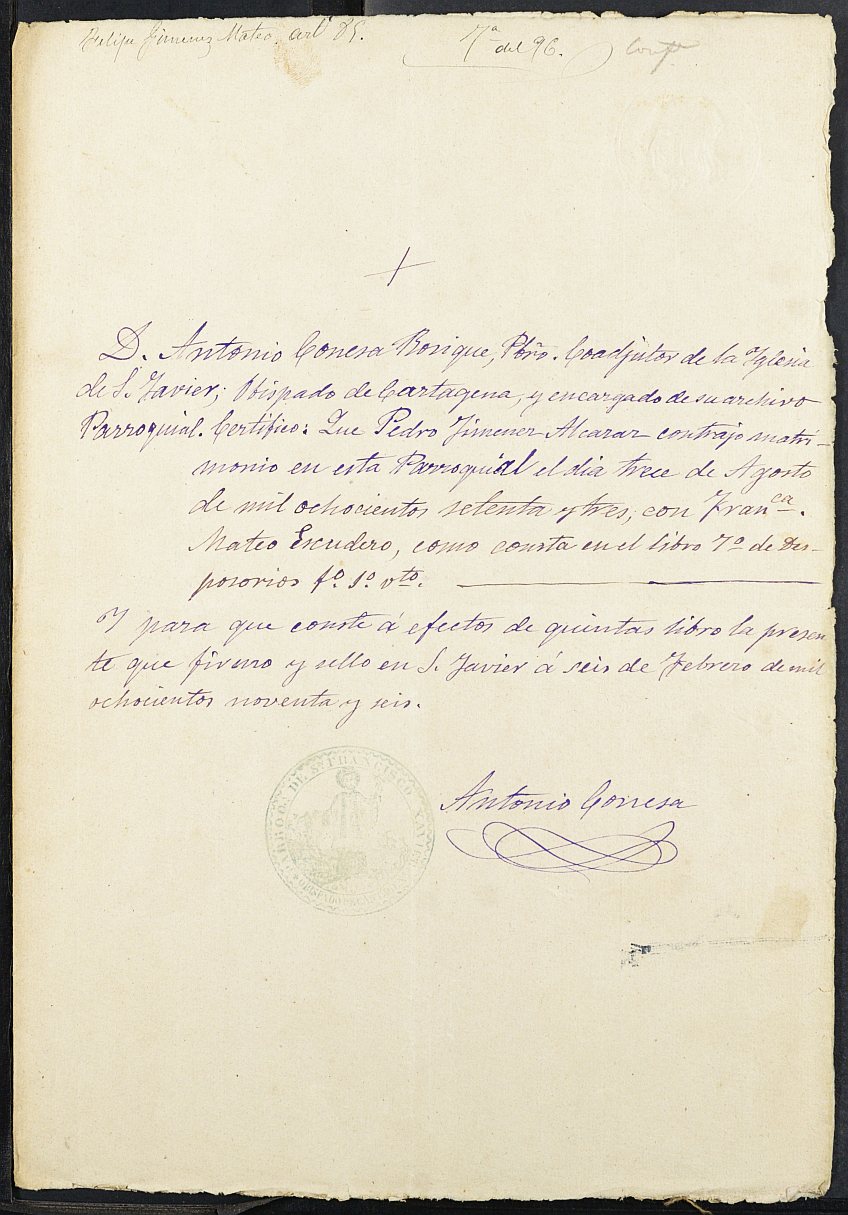 Felipe Jimenez Mateo. artº 85.
7ª del 96.
+
D. Antonio Conesa Rosique, Pbro. Coadjutor de la Iglesia
de S. Javier, Obispado de Cartagena, y encargado de su archivo
Parroquial. Certifico: Que Pedro Jimenez Alcaraz contrajo matri-
monio en esta Parroquial el dia trece de Agosto
de mil ochocientos setenta y tres, con Fran.ca
Mateo Escudero, como consta en el libro 7º de Des-
posorios fº. 1º. vto.
Y para que conste á efectos de quintas libro la presen
te que firmo y sello en S. Javier á seis de Febrero de mil
ochocientos noventa y seis.
Antonio Conesa
DE Sn. FRANCISCO XAVIER
OBISPADO DE